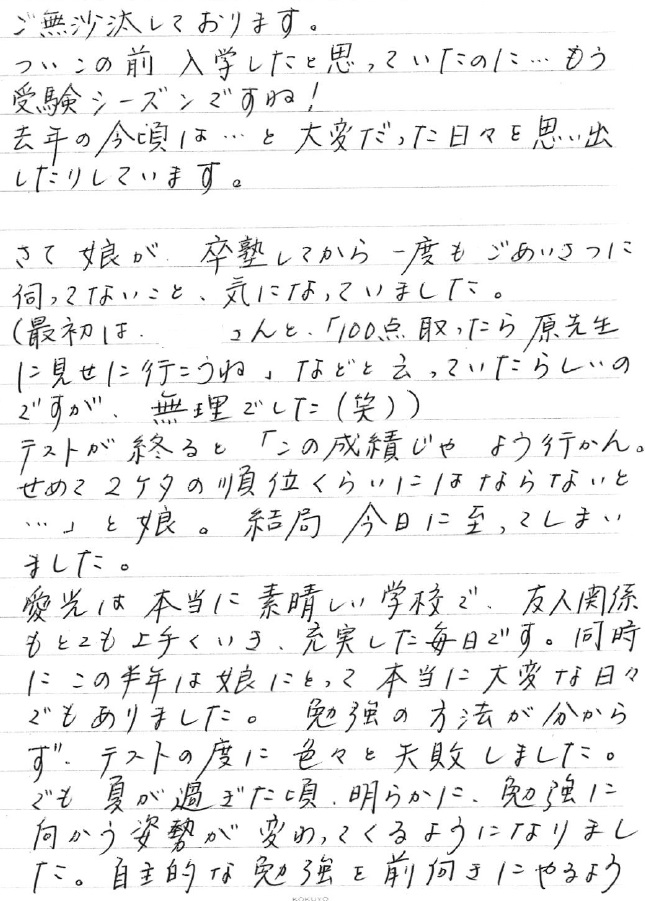 ご無沙汰しております。
ついこの前 入学したと思っていたのに…もう
受験シーズンですね!
去年の今頃は…と 大変だった日々を思い出
したりしています。
さて 娘が、卒塾してから 一度も ごあいさつに
伺ってないこと、気になっていました。
(最初は、 さんと、「100点取ったら 原先生
に見せに行こうね」などと云っていたらしいの
ですが、無理でした(笑))
テストが 終ると 「この成績じゃ よう行かん。
せめて 2ケタの順位くらいにはならないと
…」と娘。結局 今日に至ってしまい
ました。
愛光は 本当に 素晴しい学校で、友人関係
もとても上手くいき、充実した毎日です。同時
に この半年は娘にとって 本当に大変な日々
でもありました。 勉強の方法が分から
ず、テストの度に 色々と失敗しました。
でも 夏が過ぎた頃、明らかに、勉強に
向かう姿勢が 変わってくるようになりまし
た。自主的な勉強を前向きにやるよう
KOKUYO